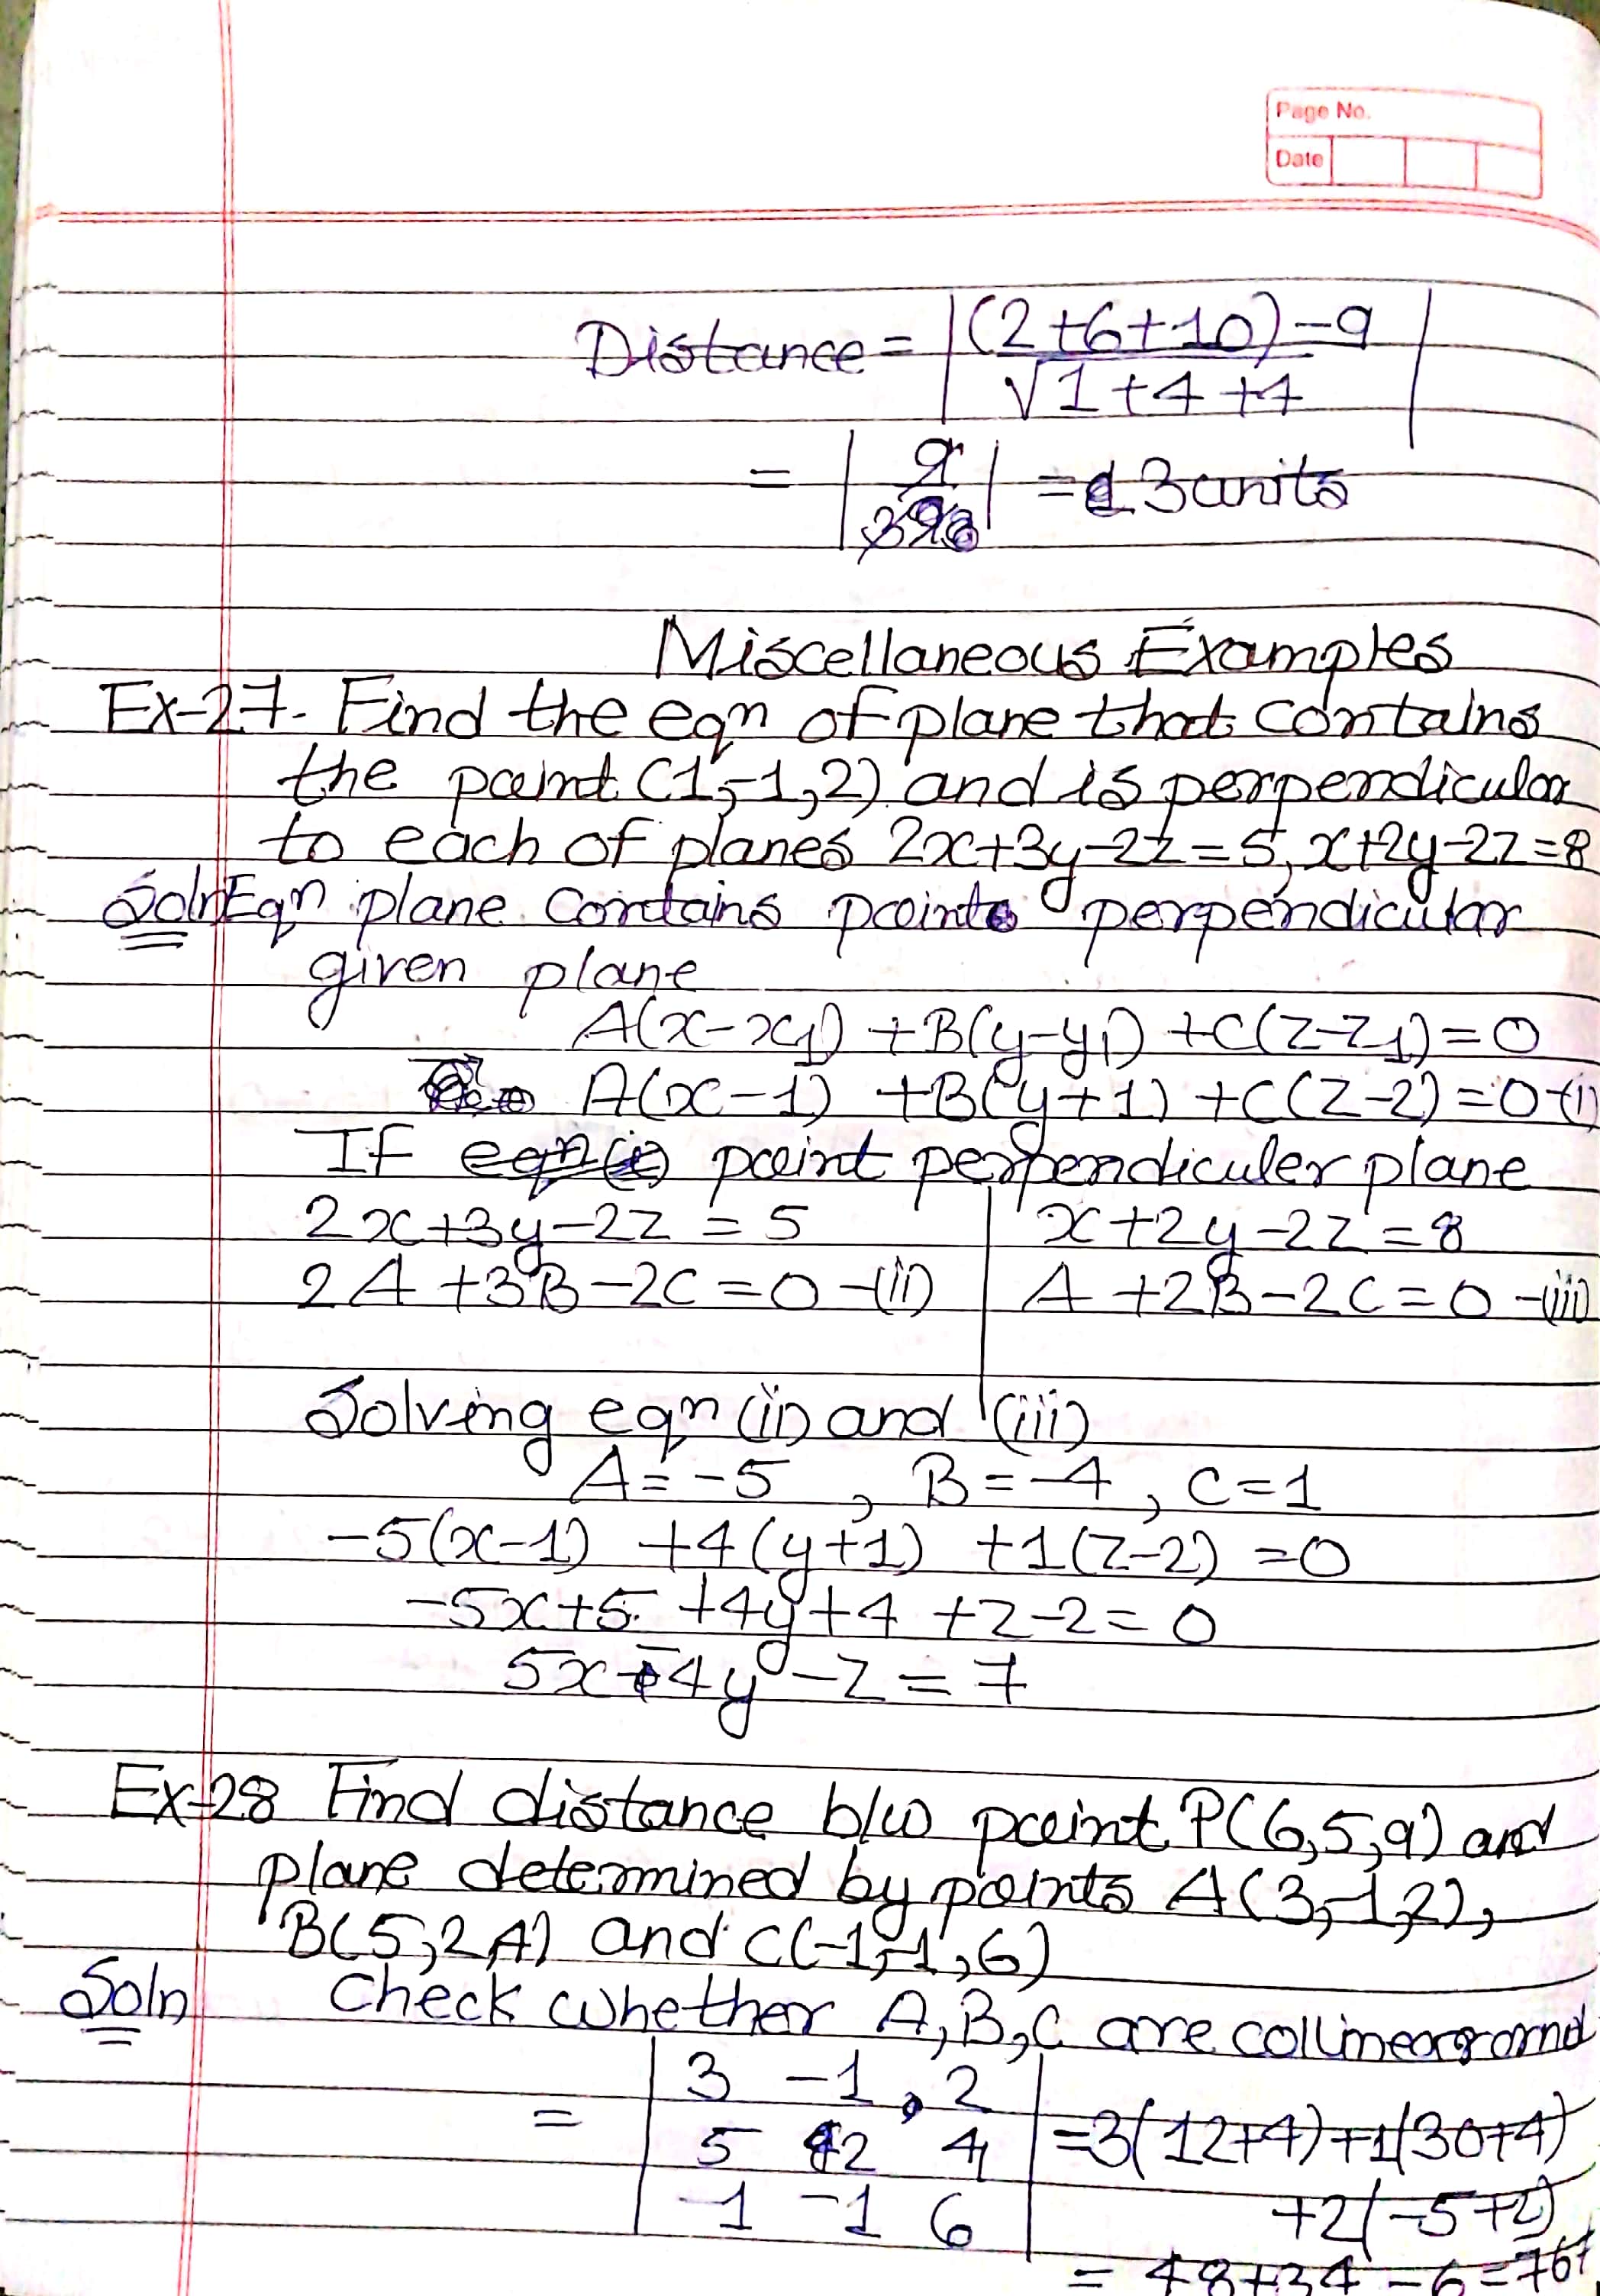 Page No.
Date
Distance = |(2+6+10)-9 / √1+4+4|
= |9/3| = 3 units
Miscellaneous Examples
Ex-27. Find the eqn of plane that contains
the point (1,-1,2) and is perpendicular
to each of planes 2x+3y-2z=5, x+2y-2z=8
Soln Eqn plane contains point perpendicular
given plane
A(x-x1) +B(y-y1) +C(z-z1)=0
A(x-1) +B(y+1) +C(z-2)=0-(i)
If point perpendiculer plane
2x+3y-2z=5 | x+2y-2z=8
2A+3B-2C=0-(ii) | A+2B-2C=0-(iii)
Solving eqn (ii) and (iii)
A=-5, B=-4, C=1
-5(x-1) +4(y+1) +1(z-2)=0
-5x+5+4y+4+z-2=0
5x-4y-z=7
Ex-28 Find distance b/w point P(6,5,9) and
plane determined by points A(3,-1,2),
B(5,2,4) and C(-1,-1,6)
Soln Check whether A,B,C are collinear
= | 3 -1, 2
5 2 4 | =3(12+4)+1(30+4)
-1 -1 6 | +2(-5+2)
= 48+34-6=76